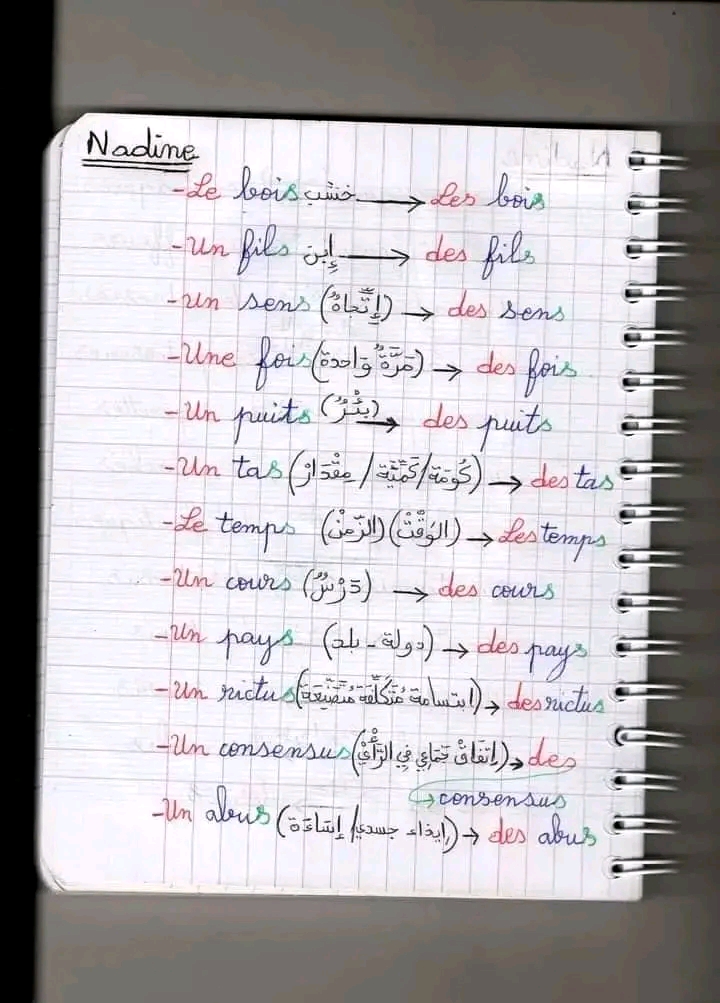 Nadine
-Le bois خشب → Les bois
-Un fils إبن → des fils
-Un sens (إِتِّجاهٌ) → des sens
-Une fois (مَرَّةٌ وَاحدة) → des fois
-Un puits (بِئْرٌ) → des puits
-Un tas (كُومَة/كَمِّيَّة/مِقْدَارْ) → des tas
-Le temps (الزّمنْ) (الوَقْتْ) → Les temps
-Un cours (دَرْسٌ) → des cours
-Un pays (دولة - بلد) → des pays
-Un rictus (ابتسامة مُتَكَلِّفَة مُتَصَنِّعَة) → des rictus
-Un consensus (إتفَاقْ جَمَاعِي فِي الرَّأْيْ) → des
→ consensus
-Un abus (إيذاء جسدي/ إسَاءَة) → des abus